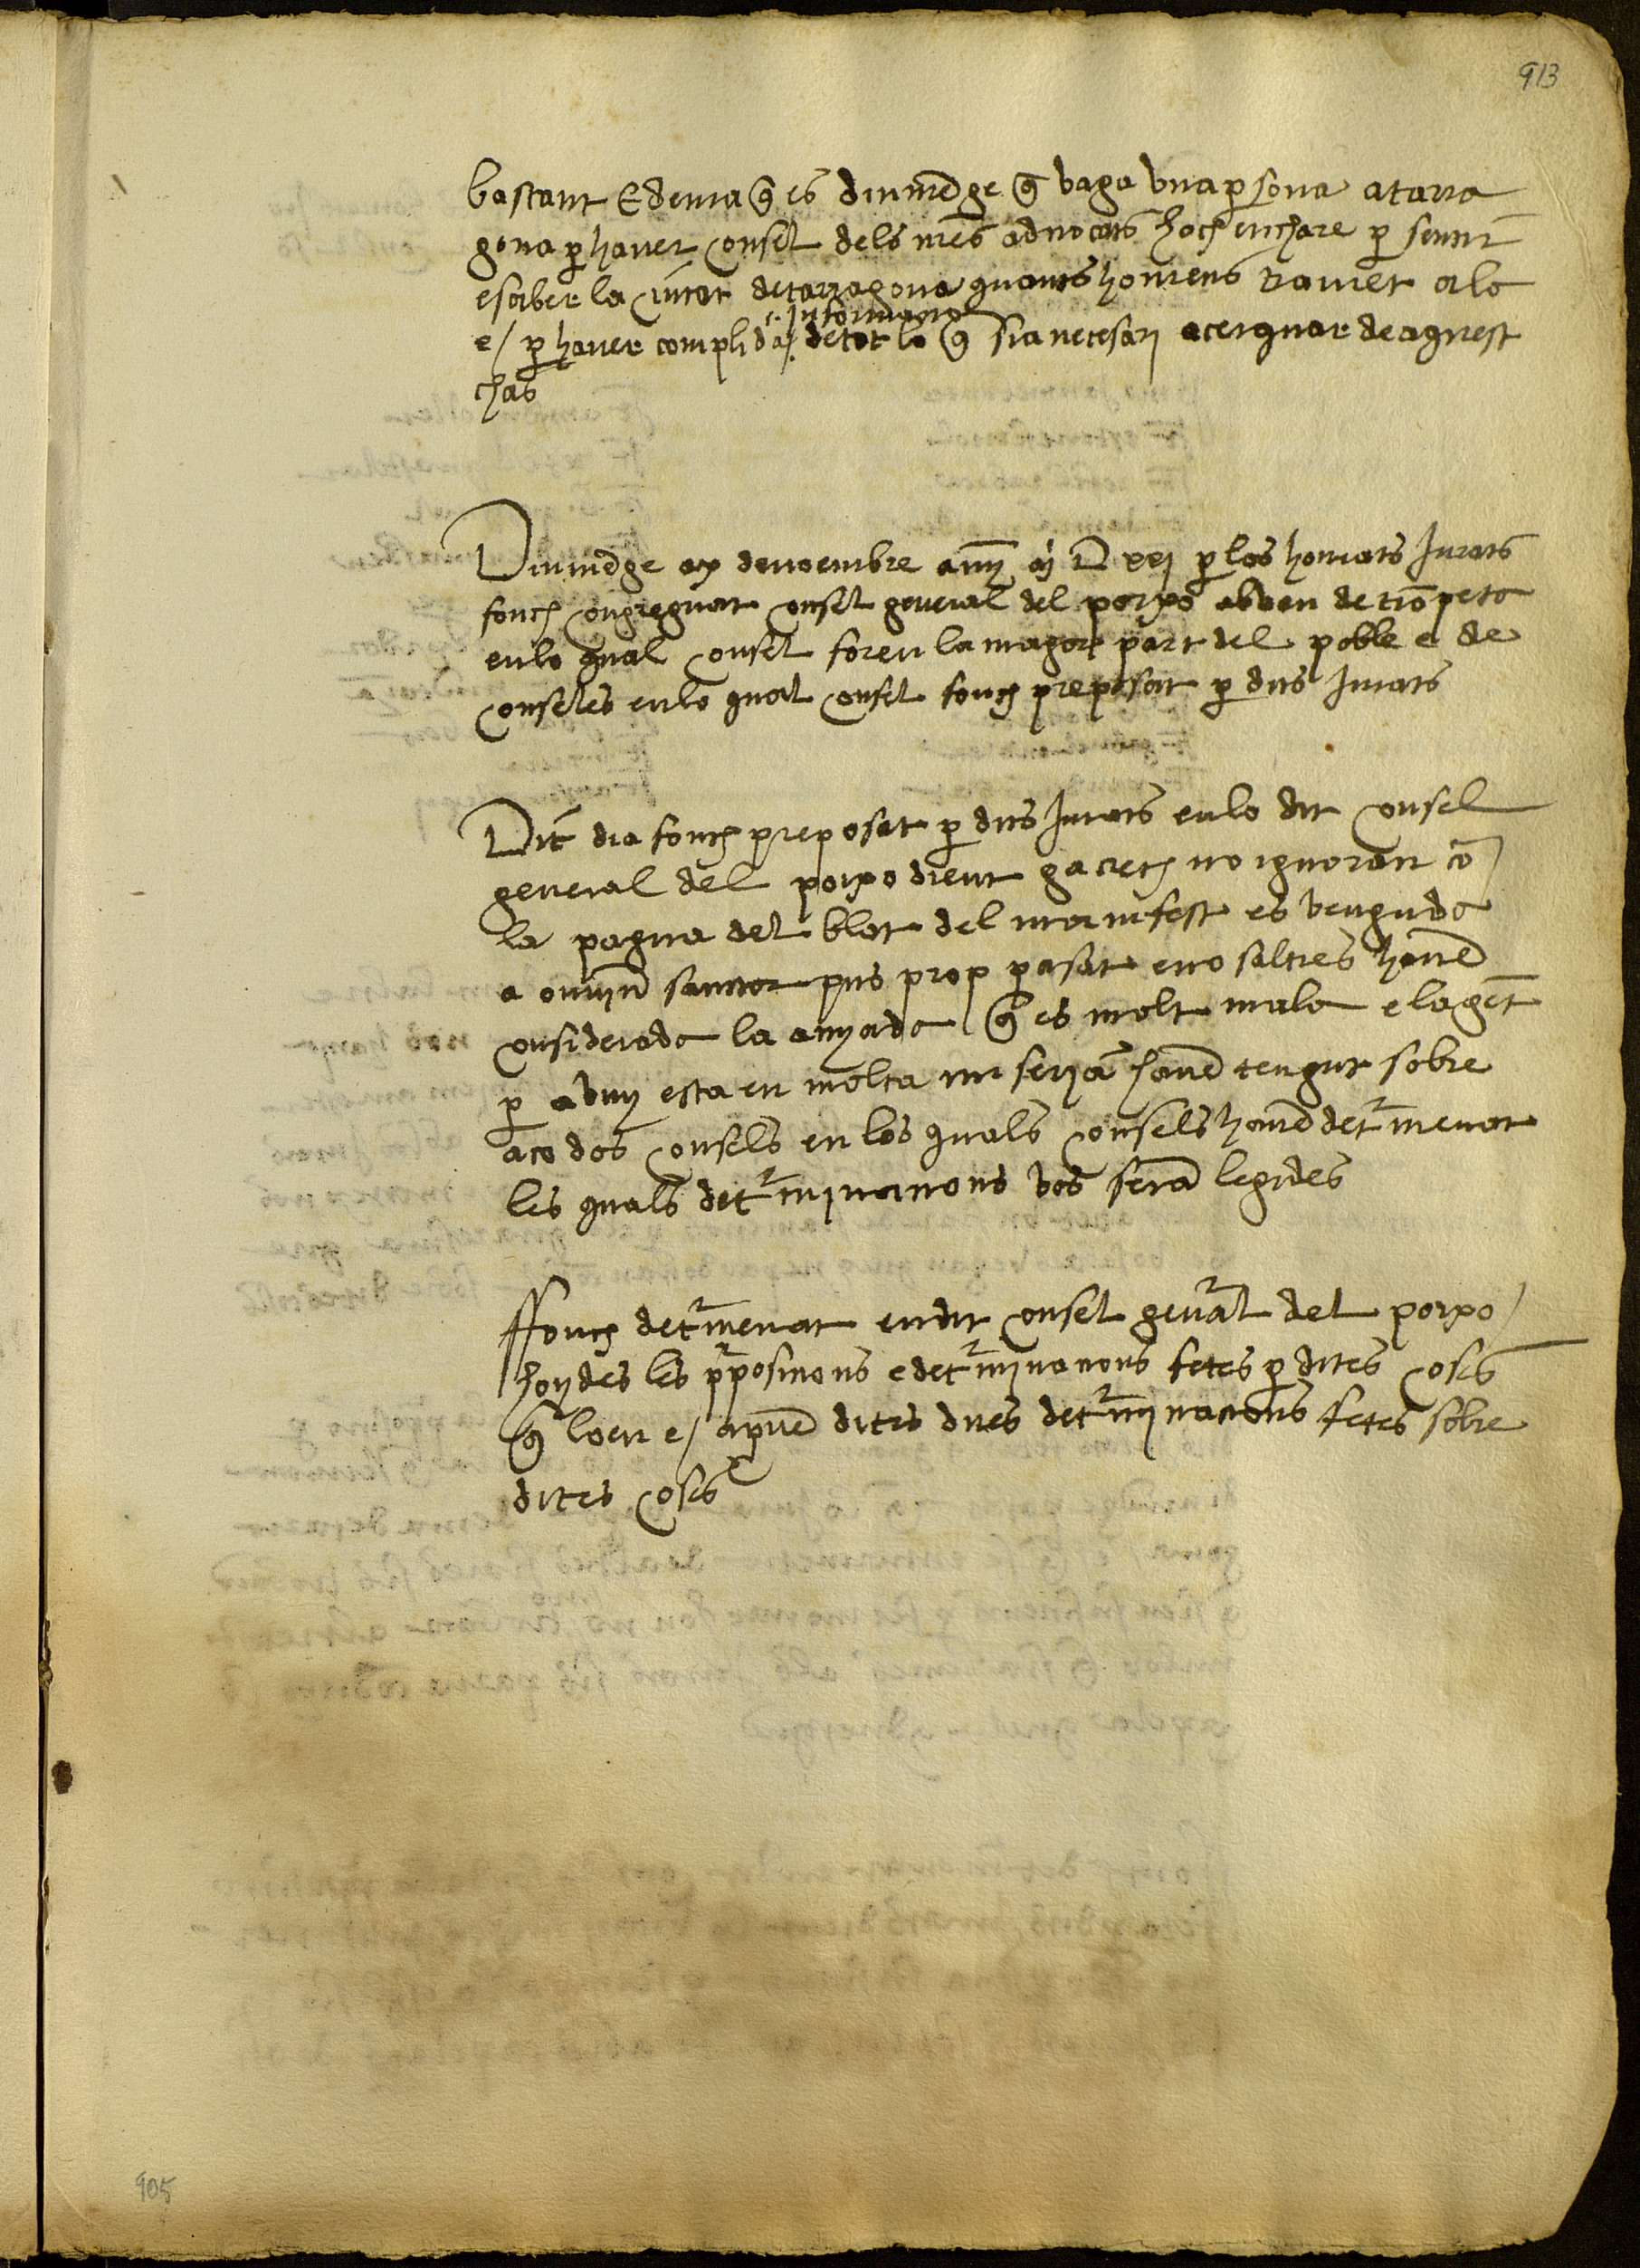 913
bastant E dema q̃ es diumẽge q̃ vaga vna p̱sona a tarra
gona p̱ hauer consel dels nr̃es aduocats hoch enchare p̱ sentir
e saber la ciutat de tarragona quants homens
e / p̱ hauer complida informacio de tot lo q̃ sia necesari acerquar de aquest
chas
Diumẽge a de noembre any M D xxj p̱ los honrats Jurats
fonch congreguat consel general del porxo ab veu de trõpeta
en lo qual consel foren la magor part del poble e de
conseles en lo qual consel fonch preposat p̱ dits Jurats
Dit dia fonch preposat p̱ dits Jurats en lo dit consel
general del porxo dient ga crech no ignoran cõ
la pagua del blat del manifest es venguda
a omniũ sanctor pus prop pasat e nosaltres hauẽ
considerada la anyada q̃ es molt mala e la gẽt
p̱ avuy esta en molta miserja hauẽ tengut sobre
aco dos consels en los quals consels hauẽ det̃menat
les quals det̃mjnacions vos serã legides
Ffonch det̃menat en dit consel gen̄al del porxo /
hoydes les p̃posicions e det̃mjnacions fetes p̱ dites coses
q̃ loen e / aprouẽ dites dues det̃mjnacions fetes sobre
dites coses
905